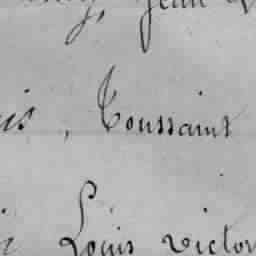 Jean
is, Toussaint
Louis victor